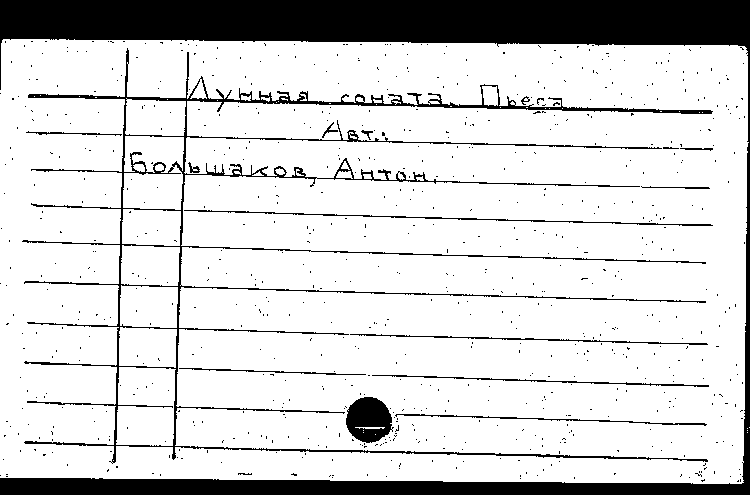 Лунная соната. Пьеса
Авт.:
Большаков, Антон.